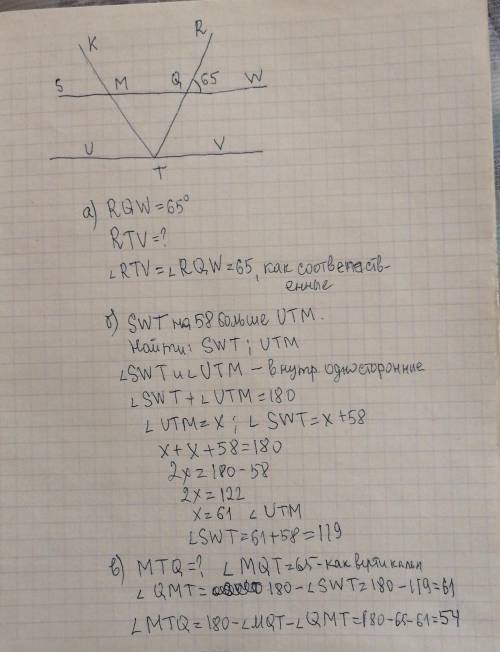 K R
S M Q 65 W
U V
T
а) RQW=65°
RTV=?
∠RTV=∠RQW=65, как соответств-
енные
б) SWT на 58 больше UTM.
Найти: SWT; UTM
∠SWT и ∠UTM – внутр. односторонние
∠SWT+∠UTM=180
∠UTM=x; ∠SWT=x+58
x+x+58=180
2x=180-58
2x=122
x=61 ∠UTM
∠SWT=61+58=119
в) MTQ=?; ∠MQT=65-как вертикальн
∠QMT= 180-∠SWT=180-119=61
∠MTQ=180-∠MQT-∠QMT=180-65-61=54